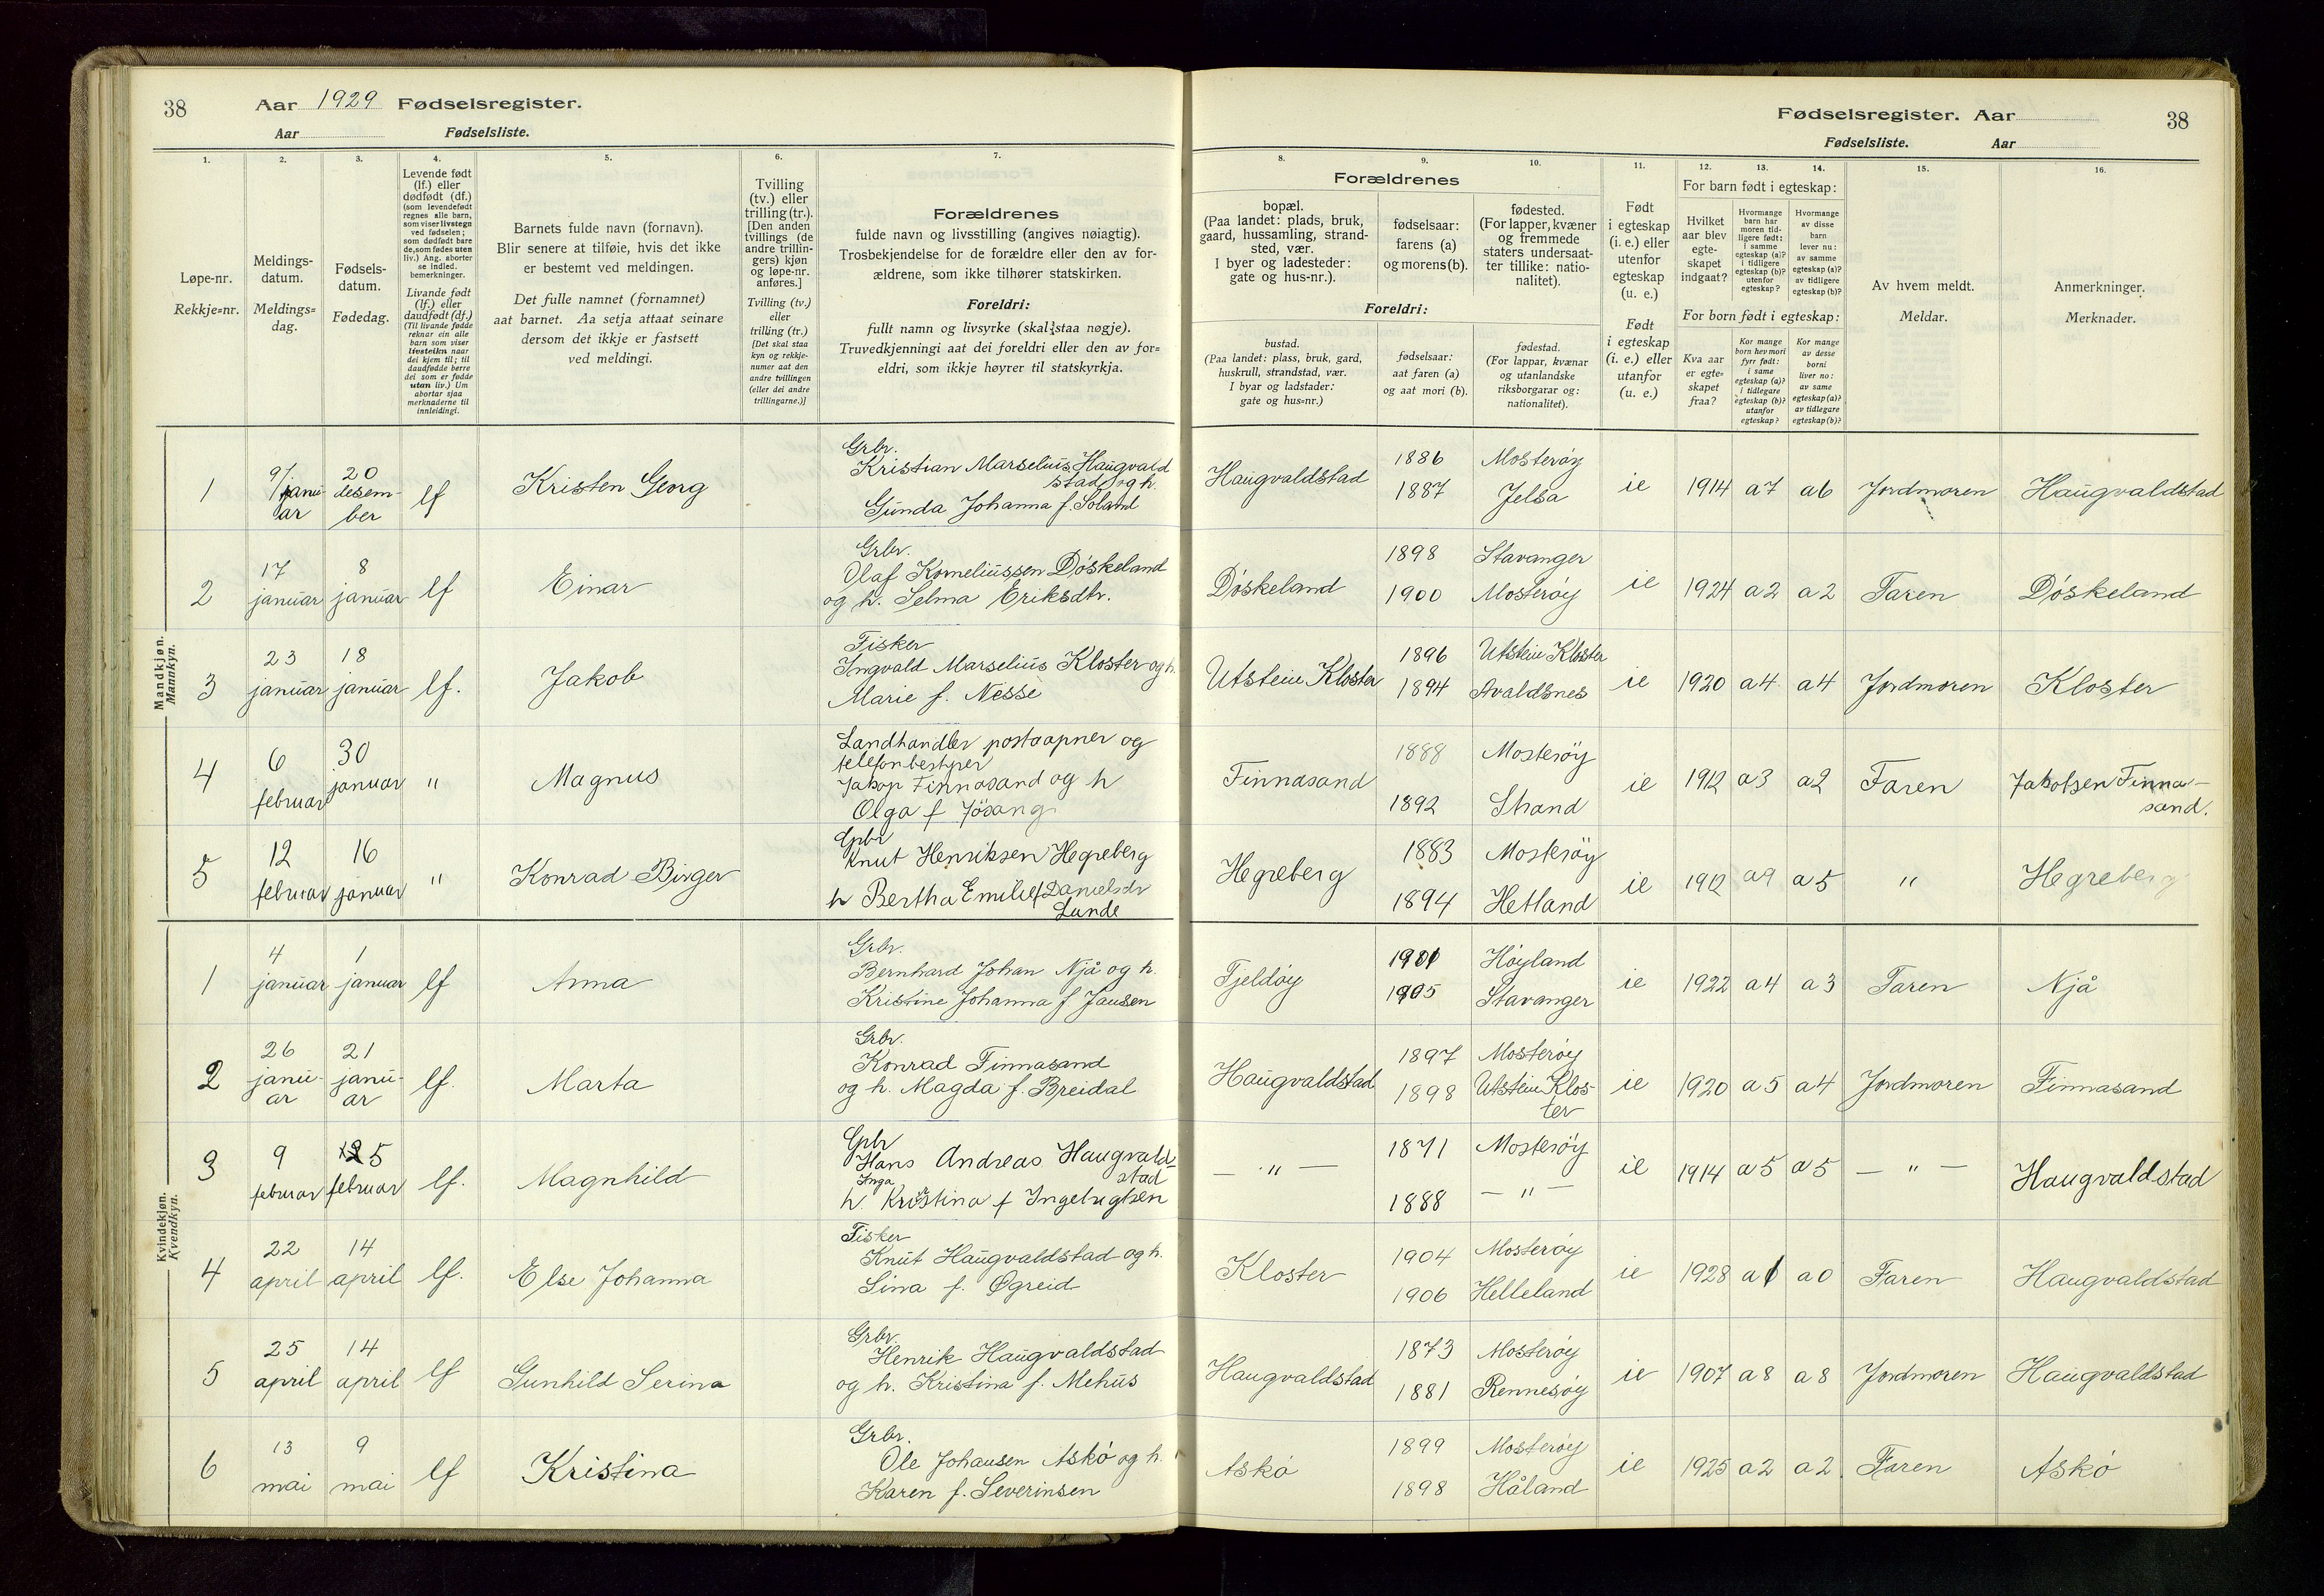 38 Aar 1929 Fødselsregister.
Aar Fødselsliste.
Fødselsregister. Aar 38
Fødselsliste. Aar
1. 2. 3. 4. 5. 6. 7. 8. 9. 10. 11. 12. 13. 14. 15. 16.
Løpe-nr.
Rekkje=nr.
Meldings-
datum.
Meldings=
dag.
Fødsels-
datum.
Fødedag.
Levende født
(lf.) eller
dødfødt (df.)
(som levendefødt
regnes alle barn,
som viser livstegn
ved fødselen;
som dødfødt bare
de, som fødes uten
liv.) Ang. aborter
se indled.
bemerkninger.
Livande født
(lf.) eller
daudfødt (df.)
(Til livande fødde
reknar ein alle
barn som viser
livsteikn naar
dei kjem til; til
daudfødde berre
dei som er fødde
utan liv.) Um
abortar sjaa
merknaderne til
innleidingi.
Barnets fulde navn (fornavn).
Blir senere at tilføie, hvis det ikke
er bestemt ved meldingen.
Det fulle namnet (fornamnet)
aat barnet. Aa setja attaat seinare
dersom det ikkje er fastsett
ved meldingi.
Tvilling
(tv.) eller
trilling (tr.).
[Den anden
tvillings (de
andre trillin-
gers) kjøn
og løpe-nr.
anføres.]
Tvilling (tv.)
eller
trilling (tr.)
[Det skal staa
kyn og rekkje-
numer aat den
andre tvillingen
(eller dei andre
trillingarne.)]
Forældrenes
fulde navn og livsstilling (angives nøiagtig).
Trosbekjendelse for de forældre eller den av for-
ældrene, som ikke tilhører statskirken.
Foreldri:
fullt namn og livsyrke (skal staa nøgje).
Truvedkjenningi aat dei foreldri eller den av for=
eldri, som ikkje høyrer til statskyrkja.
Forældrenes
bopæl.
(Paa landet: plads, bruk,
gaard, hussamling, strand-
sted, vær.
I byer og ladesteder:
gate og hus-nr.).
fødselsaar:
farens (a)
og morens (b).
fødested.
(For lapper, kvæner
og fremmede
staters undersaat-
ter tillike: natio-
nalitet).
Foreldri:
bustad.
(Paa landet: plass, bruk, gard,
huskrull, strandstad, vær.
I byar og ladstader:
gate og hus=nr.)
fødselsaar:
aat faren (a)
og aat mori (b).
fødestad.
(For lappar, kvænar
og utanlandske
riksborgarar og:
nationalitet).
Født
i egteskap
(i. e.) eller
utenfor
egteskap
(u. e.)
Født
i egteskap
(i. e.) eller
utanfor
(u. e.)
For barn født i egteskap:
Hvilket
aar blev
egte-
skapet
indgaat?
Hvormange
barn har
moren tid-
ligere født:
i samme
egteskap (a)?
i tidligere
egteskap (b)?
utenfor
egteskap?
Hvormange
av disse
barn
lever nu:
av samme
egteskap (a)?
av tidligere
egteskap (b)?
For born født i egteskap:
Kva aar
er egte=
skapet
fraa?
Kor mange
born hev mori
fyrr født:
i same
egteskap (a)?
i tidlegare
egteskap (b)?
utanfor
egteskap?
Kor mange
av desse
borni
liver no:
av same
egteskap (a)?
av tidlegare
egteskap (b)?
Av hvem meldt.
Meldar.
Anmerkninger.
Merknader.
Mandkjøn.
Mannkyn.
1 9/januar 20 desember lf Kristen Georg Grbr. Kristian Marselius Haugvaldstad og h. Gunda Johanna f. Soland Haugvaldstad 1886 1887 Mosterøy Jelsa ie 1914 a7 a6 Jordmoren Haugvaldstad
2 17 januar 8 januar lf Einar Grbr. Olaf Korneliussen Døskeland og h. Selma Eriksdtr. Døskeland 1898 1900 Stavanger Mosterøy ie 1924 a2 a2 Faren Døskeland
3 23 januar 18 januar lf. Jakob Fisker Ingvald Marselius Kloster og h. Marie f. Nesse Utstein Kloster 1896 1894 Utstein Kloster Avaldsnes ie 1920 a4 a4 Jordmoren Kloster
4 6 februar 30 januar " Magnus Landhandler postaapner og telefonbestyrer Jakob Finnasand og h Olga f Jösang Finnasand 1888 1892 Mosterøy Strand ie 1912 a3 a2 Faren Finnasand.
5 12 februar 16 januar " Konrad Birger Gbr Knut Henriksen Hegreberg h Bertha Emilie f Danielsdr Lunde Hegreberg 1883 1894 Mosterøy Hetland ie 1912 a9 a5 " Hegreberg
Kvindekjøn.
Kvendkyn.
1 4 januar 1 januar lf Anna Grbr. Bernhard Johan Njå og h. Kristine Johanna f Jansen Fjeldøy 1901 1905 Høyland Stavanger ie 1922 a4 a3 Faren Njå
2 26 januar 21 januar lf. Marta Grbr. Konrad Finnasand og h. Magda f. Breidal Haugvaldstad 1897 1898 Mosterøy Utstein Kloster ie 1920 a5 a4 Jordmoren Finnasand
3 9 februar 5 februar lf. Magnhild Gbr Hans Andreas Haugvaldstad h. Inga Kristina f Ingebrigtsen — " — 1871 1888 Mosterøy — " — ie 1914 a5 a5 — " — Haugvaldstad
4 22 april 14 april lf. Else Johanna Fisker Knut Haugvaldstad og h. Lina f. Øgreid Kloster 1904 1906 Mosterøy Helleland ie 1928 a1 a0 Faren Haugvaldstad
5 25 april 14 april lf Gunhild Serina Grbr. Henrik Haugvaldstad og h. Kristina f. Mehus Haugvaldstad 1873 1881 Mosterøy Rennesøy ie 1907 a8 a8 Jordmoren Haugvaldstad
6 13 mai 9 mai lf Kristina Grbr. Ole Johansen Askø og h. Karen f. Severinsen Askø 1899 1898 Mosterøy Håland ie 1925 a2 a2 Faren Askø